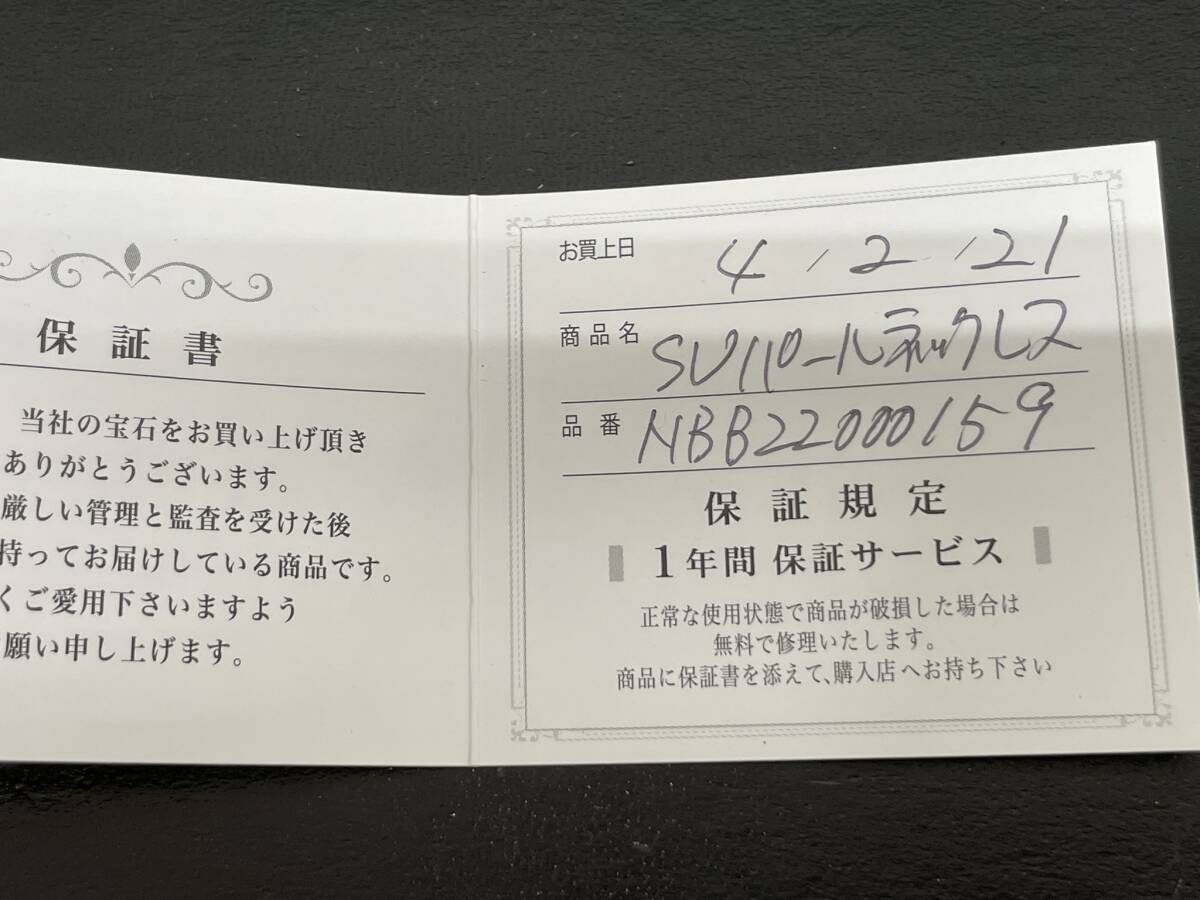 保証書
当社の宝石をお買い上げ頂き
ありがとうございます。
厳しい管理と監査を受けた後
持ってお届けしている商品です。
くご愛用下さいますよう
願い申し上げます。
お買上日 4/2/21
商品名 SVパールネックレス
品番 NBB22000159
保証規定
1年間 保証サービス
正常な使用状態で商品が破損した場合は
無料で修理いたします。
商品に保証書を添えて、購入店へお持ち下さい